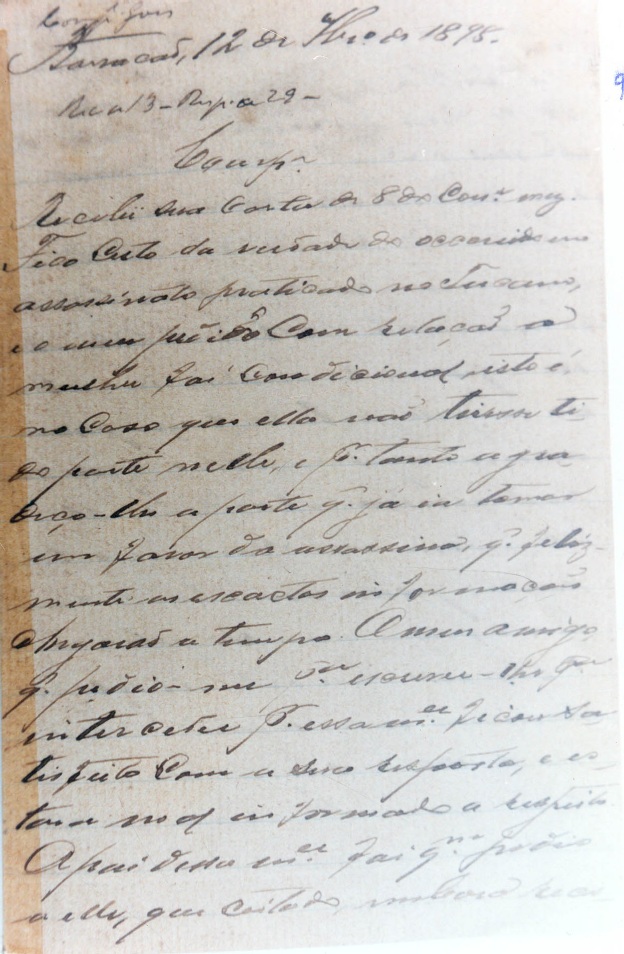 Barracão, 12 de 7bro de 1898.
Rec a 13 - Resp. a 29 -
Comp.e
Recebi sua Carta de 8 do Corr.e mez.
Fico Certo da verdade do occorrido no
assassinato praticado no Tucano,
e o meu pedido Com relação a
mulher foi Condicional, isto é,
no Caso que ella não tivesse ti-
do parte nelle, e p.r tanto agra-
deço-lhe a parte q. já ia tomar
em favor da assassina, q. feliz-
mente as exactas informações
chegarão a tempo. O meu amigo
q. pedio-me p.a escrever-lhe p.a
interceder p. essa m.er ficou sa-
tisfeito Com a sua resposta, e es-
tava mal informado a respeito.
O pai dessa m.er foi q.m pedio
a elle, que coitado, embora